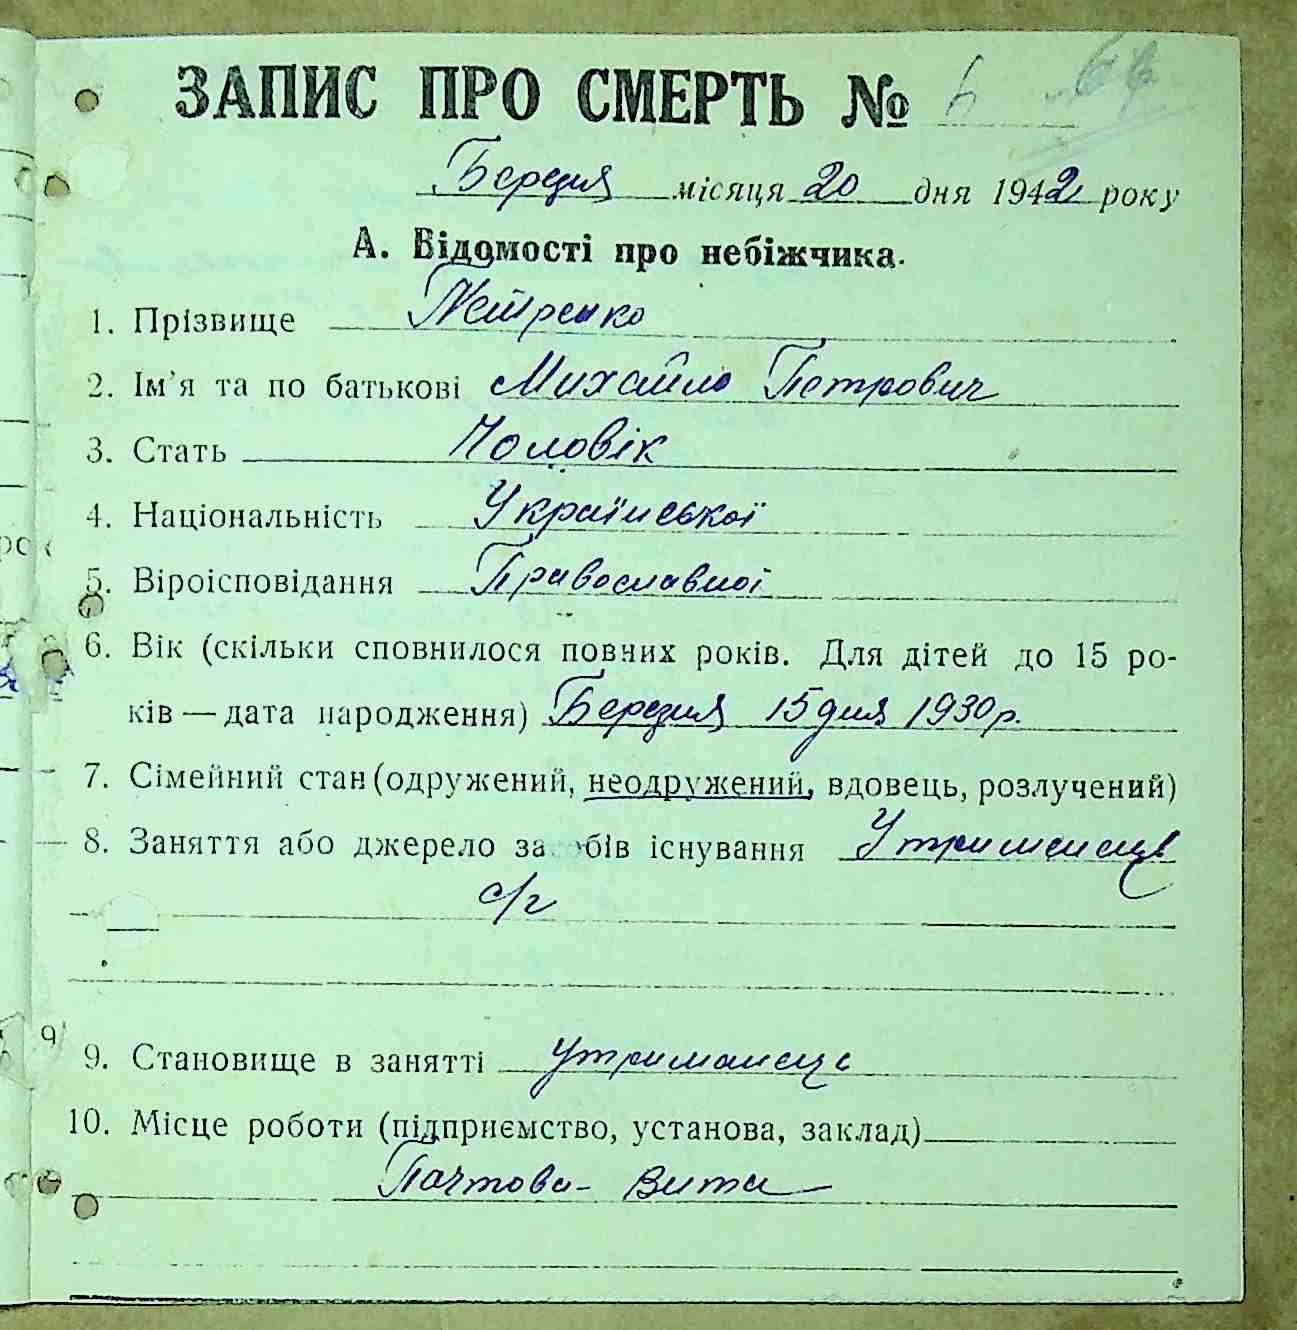 ЗАПИС ПРО СМЕРТЬ № 6
Березня місяця 20 дня 1942 року
А. Відомості про небіжчика.
1. Прізвище Петренко
2. Ім'я та по батькові Михайло Петрович
3. Стать Чоловік
4. Національність Української
5. Віроісповідання Православної
6. Вік (скільки сповнилося повних років. Для дітей до 15 ро-
ків — дата народження) Березня 15 дня 1930 р.
7. Сімейний стан (одружений, неодружений, вдовець, розлучений)
8. Заняття або джерело засобів існування Утриманець
с/г
9. Становище в занятті утриманець
10. Місце роботи (підприємство, установа, заклад)
Почтова-Вита